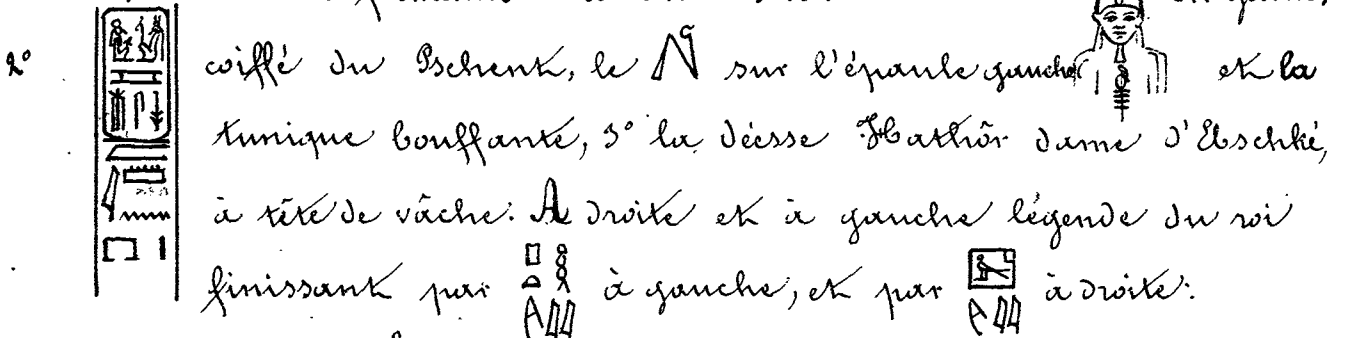 2° coiffé du Pschent, le sur l'épaule gauche et la
tunique bouffante, 3° la déesse Hathôr dame d'Ebschké,
à tête de vâche: A droite et à gauche légende du roi
finissant par à gauche, et par à droite: